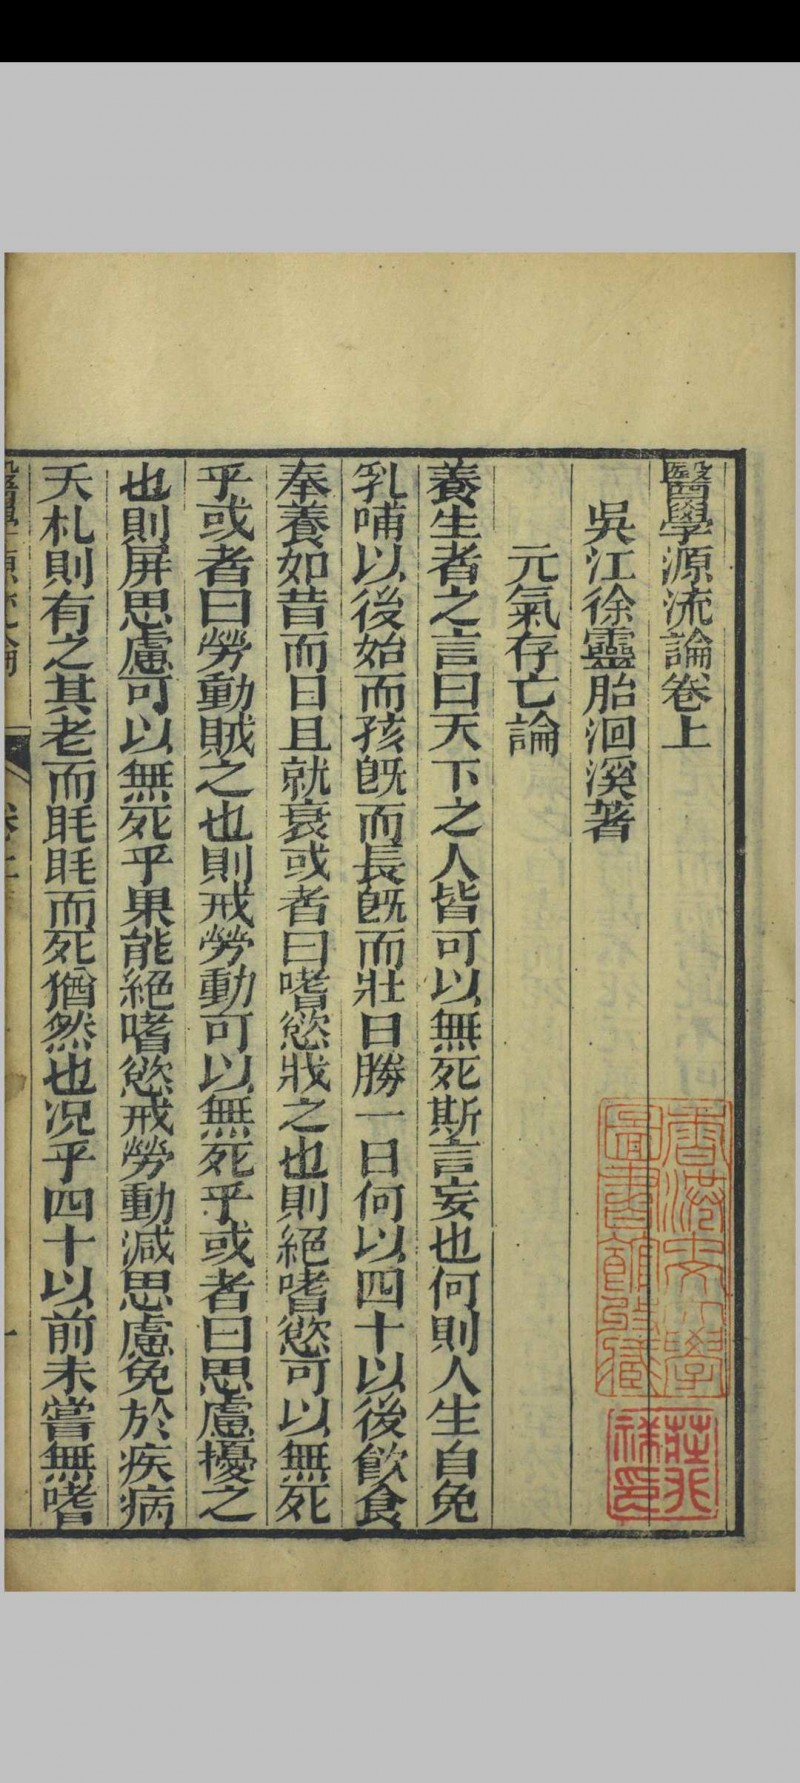 醫學源流論卷上
吳江徐靈胎洄溪著
元氣存亡論
養生者之言曰天下之人皆可以無死斯言妄也何則人生自免
乳哺以後始而孩旣而長旣而壯日勝一日何以四十以後飲食
奉養如昔而日且就衰或者曰嗜慾戕之也則絕嗜慾可以無死
乎或者曰勞動賊之也則戒勞動可以無死乎或者曰思慮擾之
也則屏思慮可以無死乎果能絕嗜慾戒勞動減思慮免於疾病
夭札則有之其老而眊眊而死猶然也况乎四十以前未嘗無嗜
醫學源流論
卷上
一
香港大學
圖書館藏